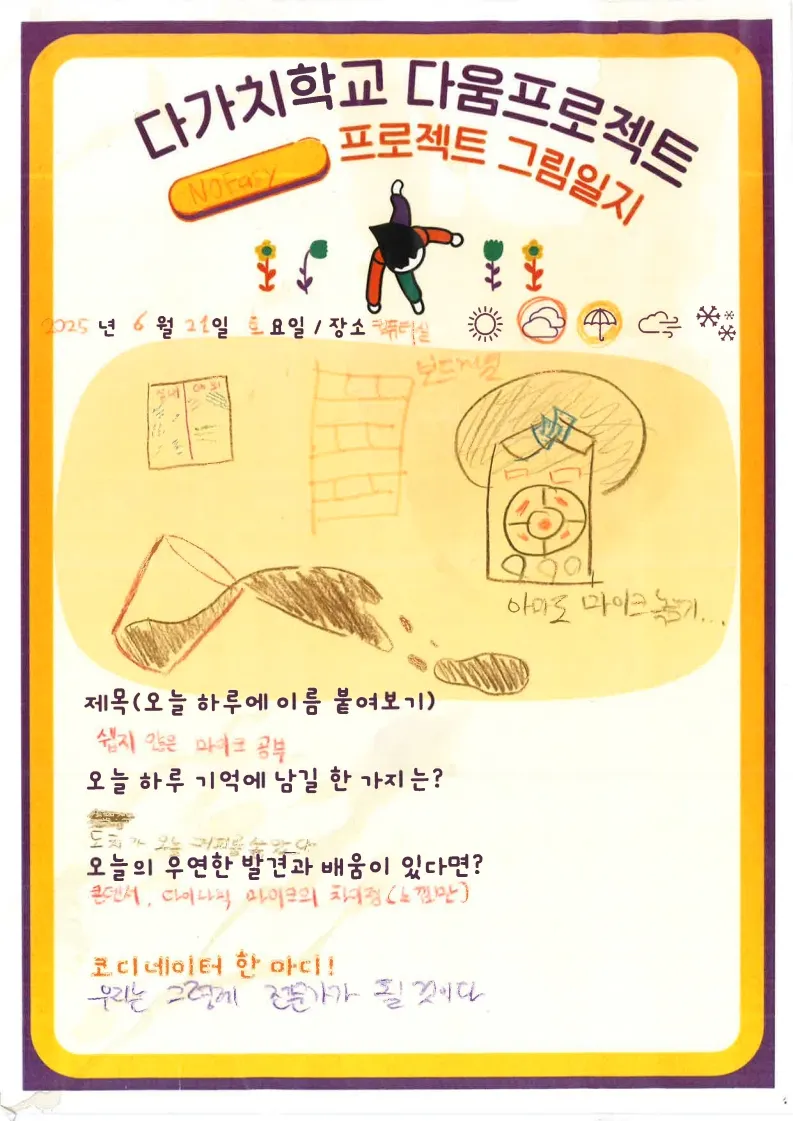 다가치학교 다움프로젝트
프로젝트 그림일지
NOEasy
2025 년 6 월 21일 토요일 / 장소 컴퓨터실
실내 야외
보드게임
아마도 마이크 녹음기...
제목(오늘 하루에 이름 붙여보기)
쉽지 않은 마이크 공부
오늘 하루 기억에 남길 한 가지는?
가 오늘 커피를 쏟았다
오늘의 우연한 발견과 배움이 있다면?
콘덴서, 다이나믹 마이크의 차이점(느낌만)
코디네이터 한 마디!
우리는 그렇게 전문가가 될 것이다